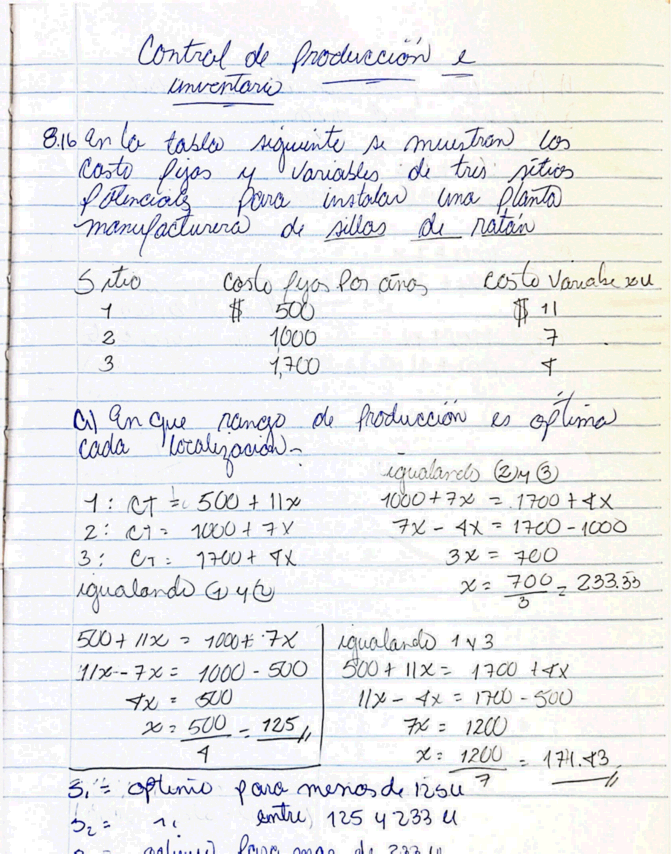 Control de Producción e
inventario
8.16 En la tabla siguiente se muestran los
costo fijos y variables de tres sitios
potenciales para instalar una planta
manufacturera de sillas de ratán
Sitio costo fijos Por años costo Variable xu
1 $ 500 $ 11
2 1000 7
3 1,700 4
a) En que rango de Producción es óptima
cada localización-
igualando (2) y (3)
1: CT = 500 + 11x 1000 + 7x = 1700 + 4x
2: CT = 1000 + 7x 7x - 4x = 1700 - 1000
3: CT = 1700 + 4x 3x = 700
igualando (1) y (2) x = 700/3 = 233.33
500 + 11x = 1000 + 7x igualando 1 y 3
11x - 7x = 1000 - 500 500 + 11x = 1700 + 4x
4x = 500 11x - 4x = 1700 - 500
x = 500/4 = 125 7x = 1200
x = 1200/7 = 171.43
S1 = optimo para menos de 125u
S2 = " entre 125 y 233 u
para mas de 233 u